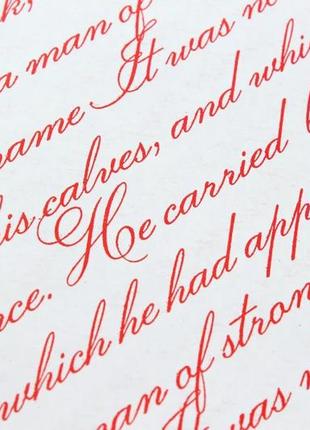 a man of
name It was no
his calves, and whi
He carried
nce.
which he had app
man of stron
It was n